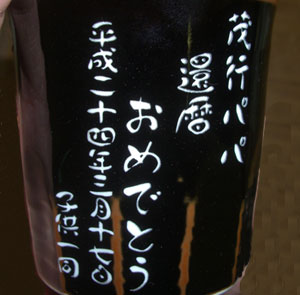 茂行パパ
還暦
おめでとう
平成二十四年三月十七日
子供一同